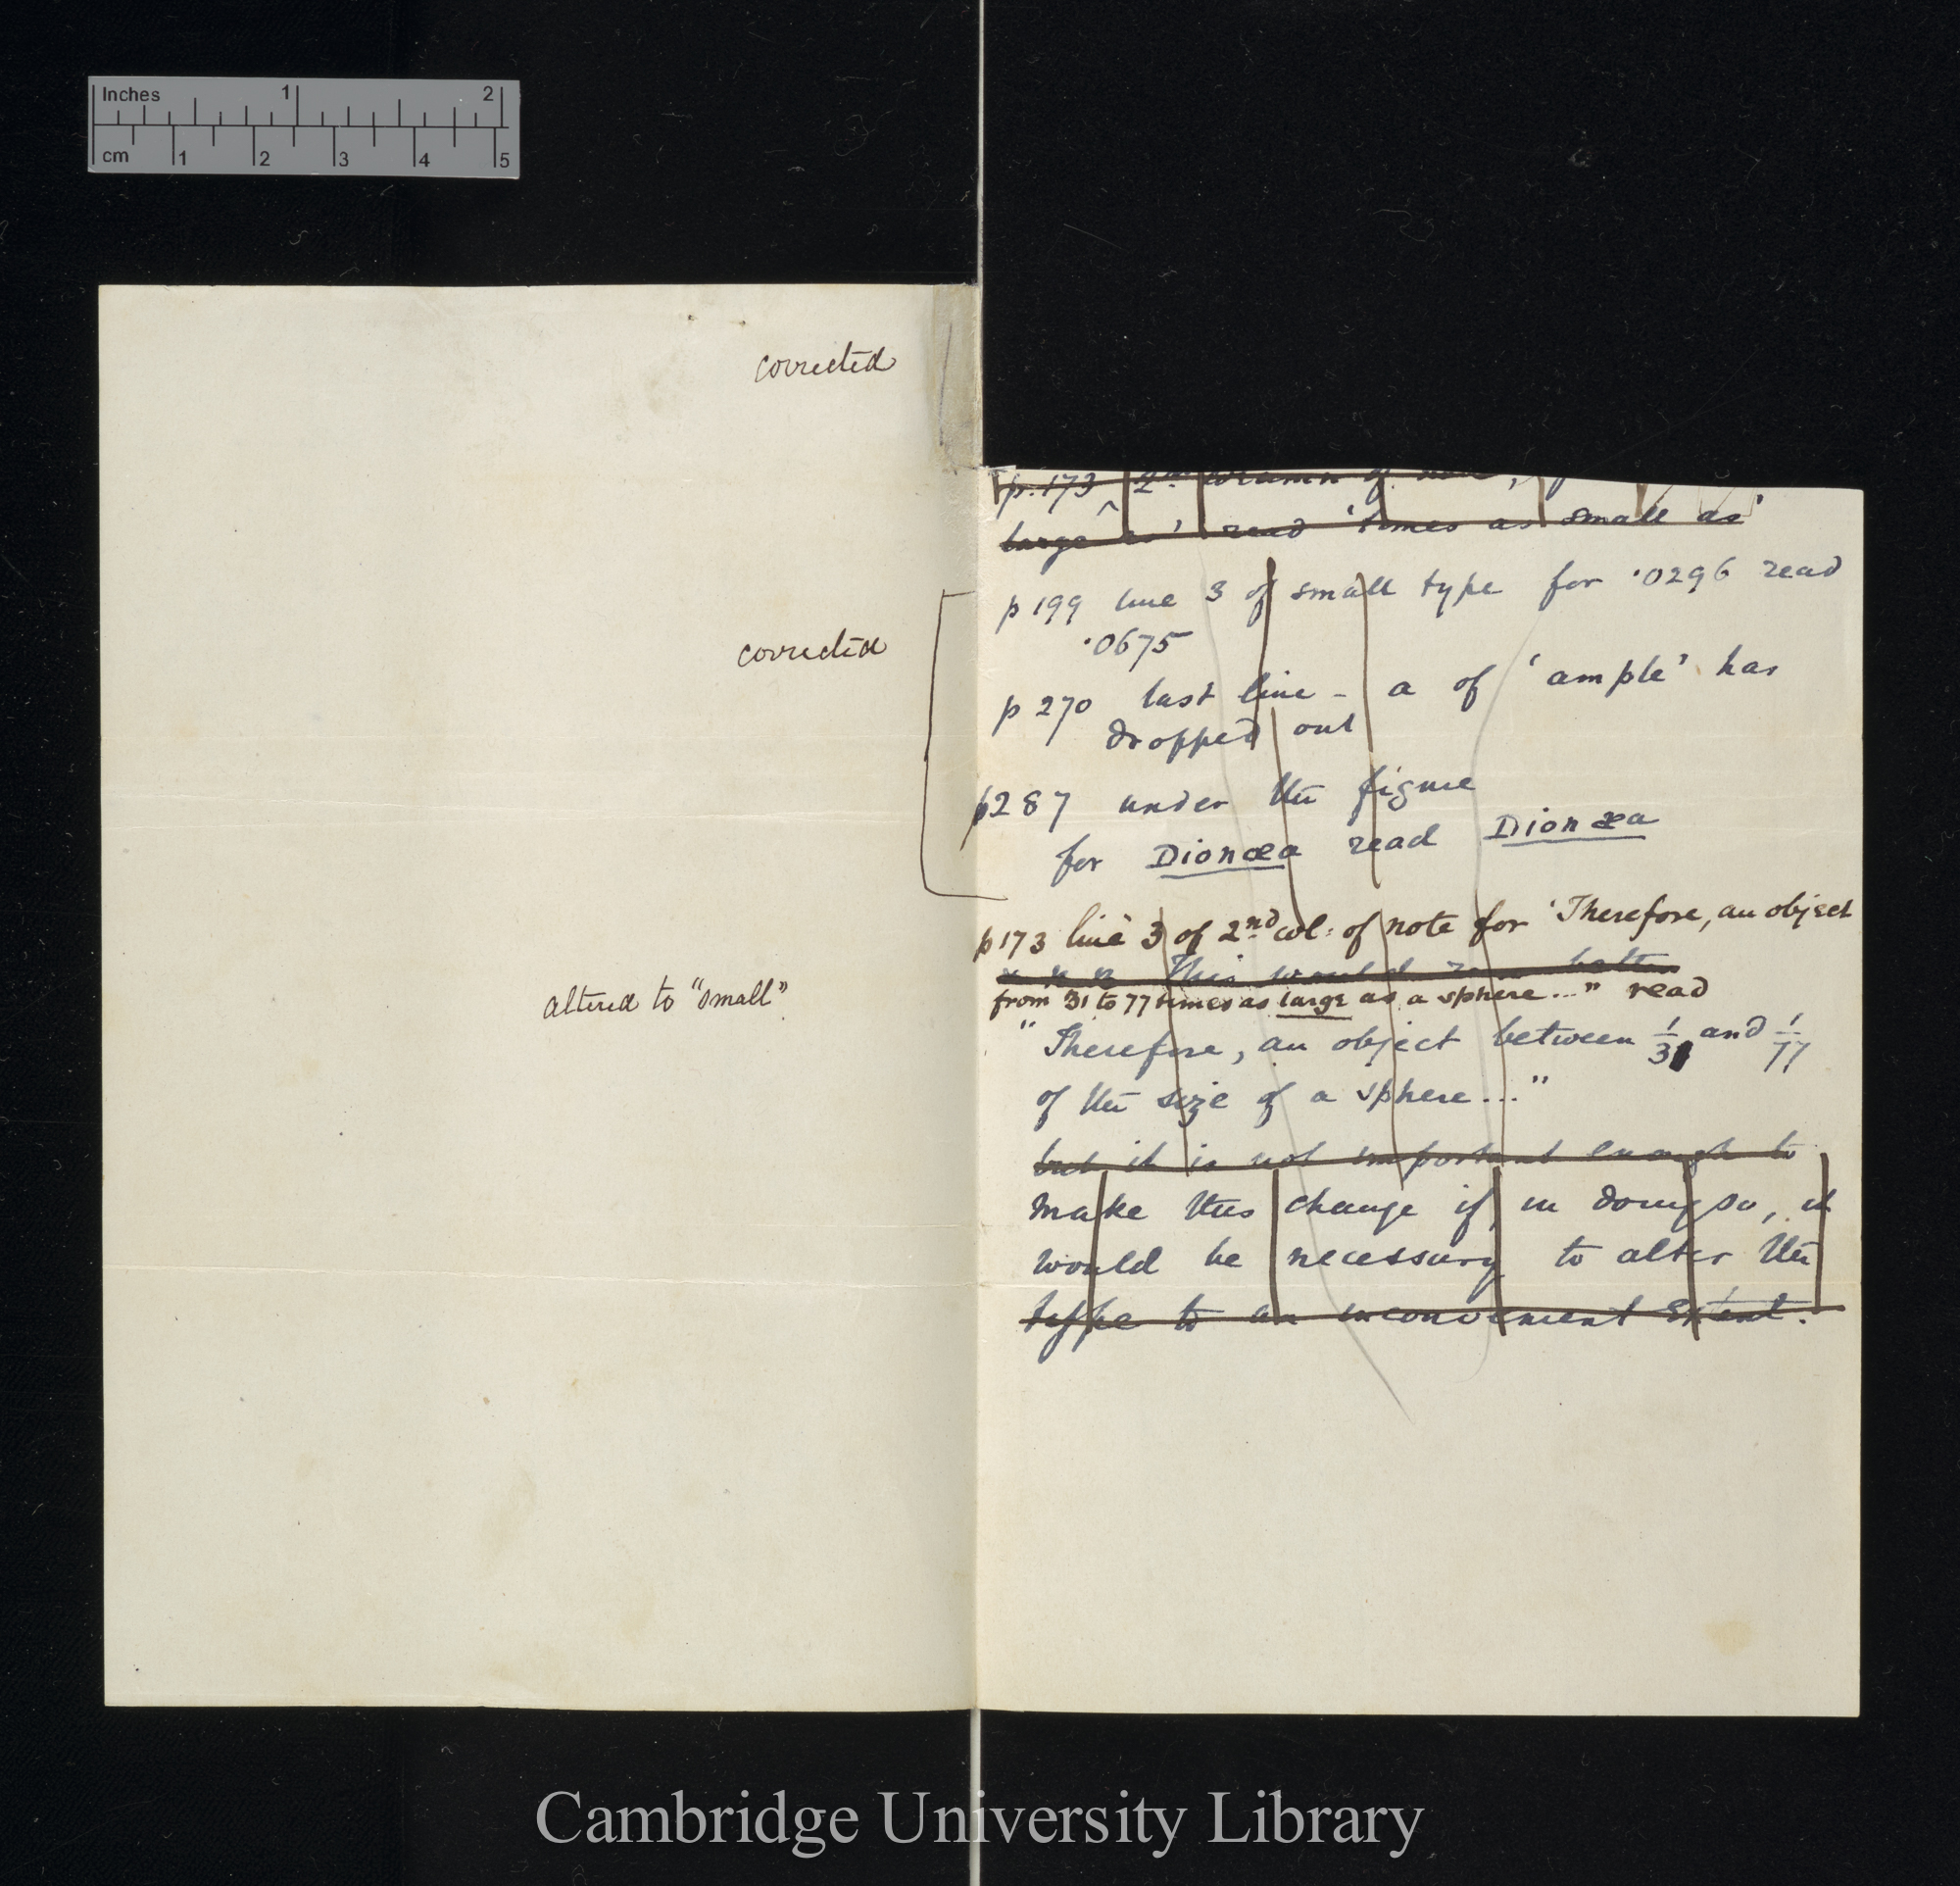 Inches 1 2
cm 1 2 3 4 5
corrected
corrected
altered to "small"
p. 173 2nd column of
large as' read 'times as small as'
p 199 line 3 of small type for ·0296 read
·0675
p 270 last line - a of 'ample' has
dropped out
p287 under the figure
for Dionœa read Dionæa
p173 line 3 of 2nd col: of note for 'Therefore, an object
This would read better
from 31 to 77 times as large as a sphere..." read
"Therefore, an object between 1/31 and 1/77
of the size of a sphere..."
but it is not important enough to
make this change if, in doing so, it
would be necessary to alter the
type to an inconvenient extent.
Cambridge University Library